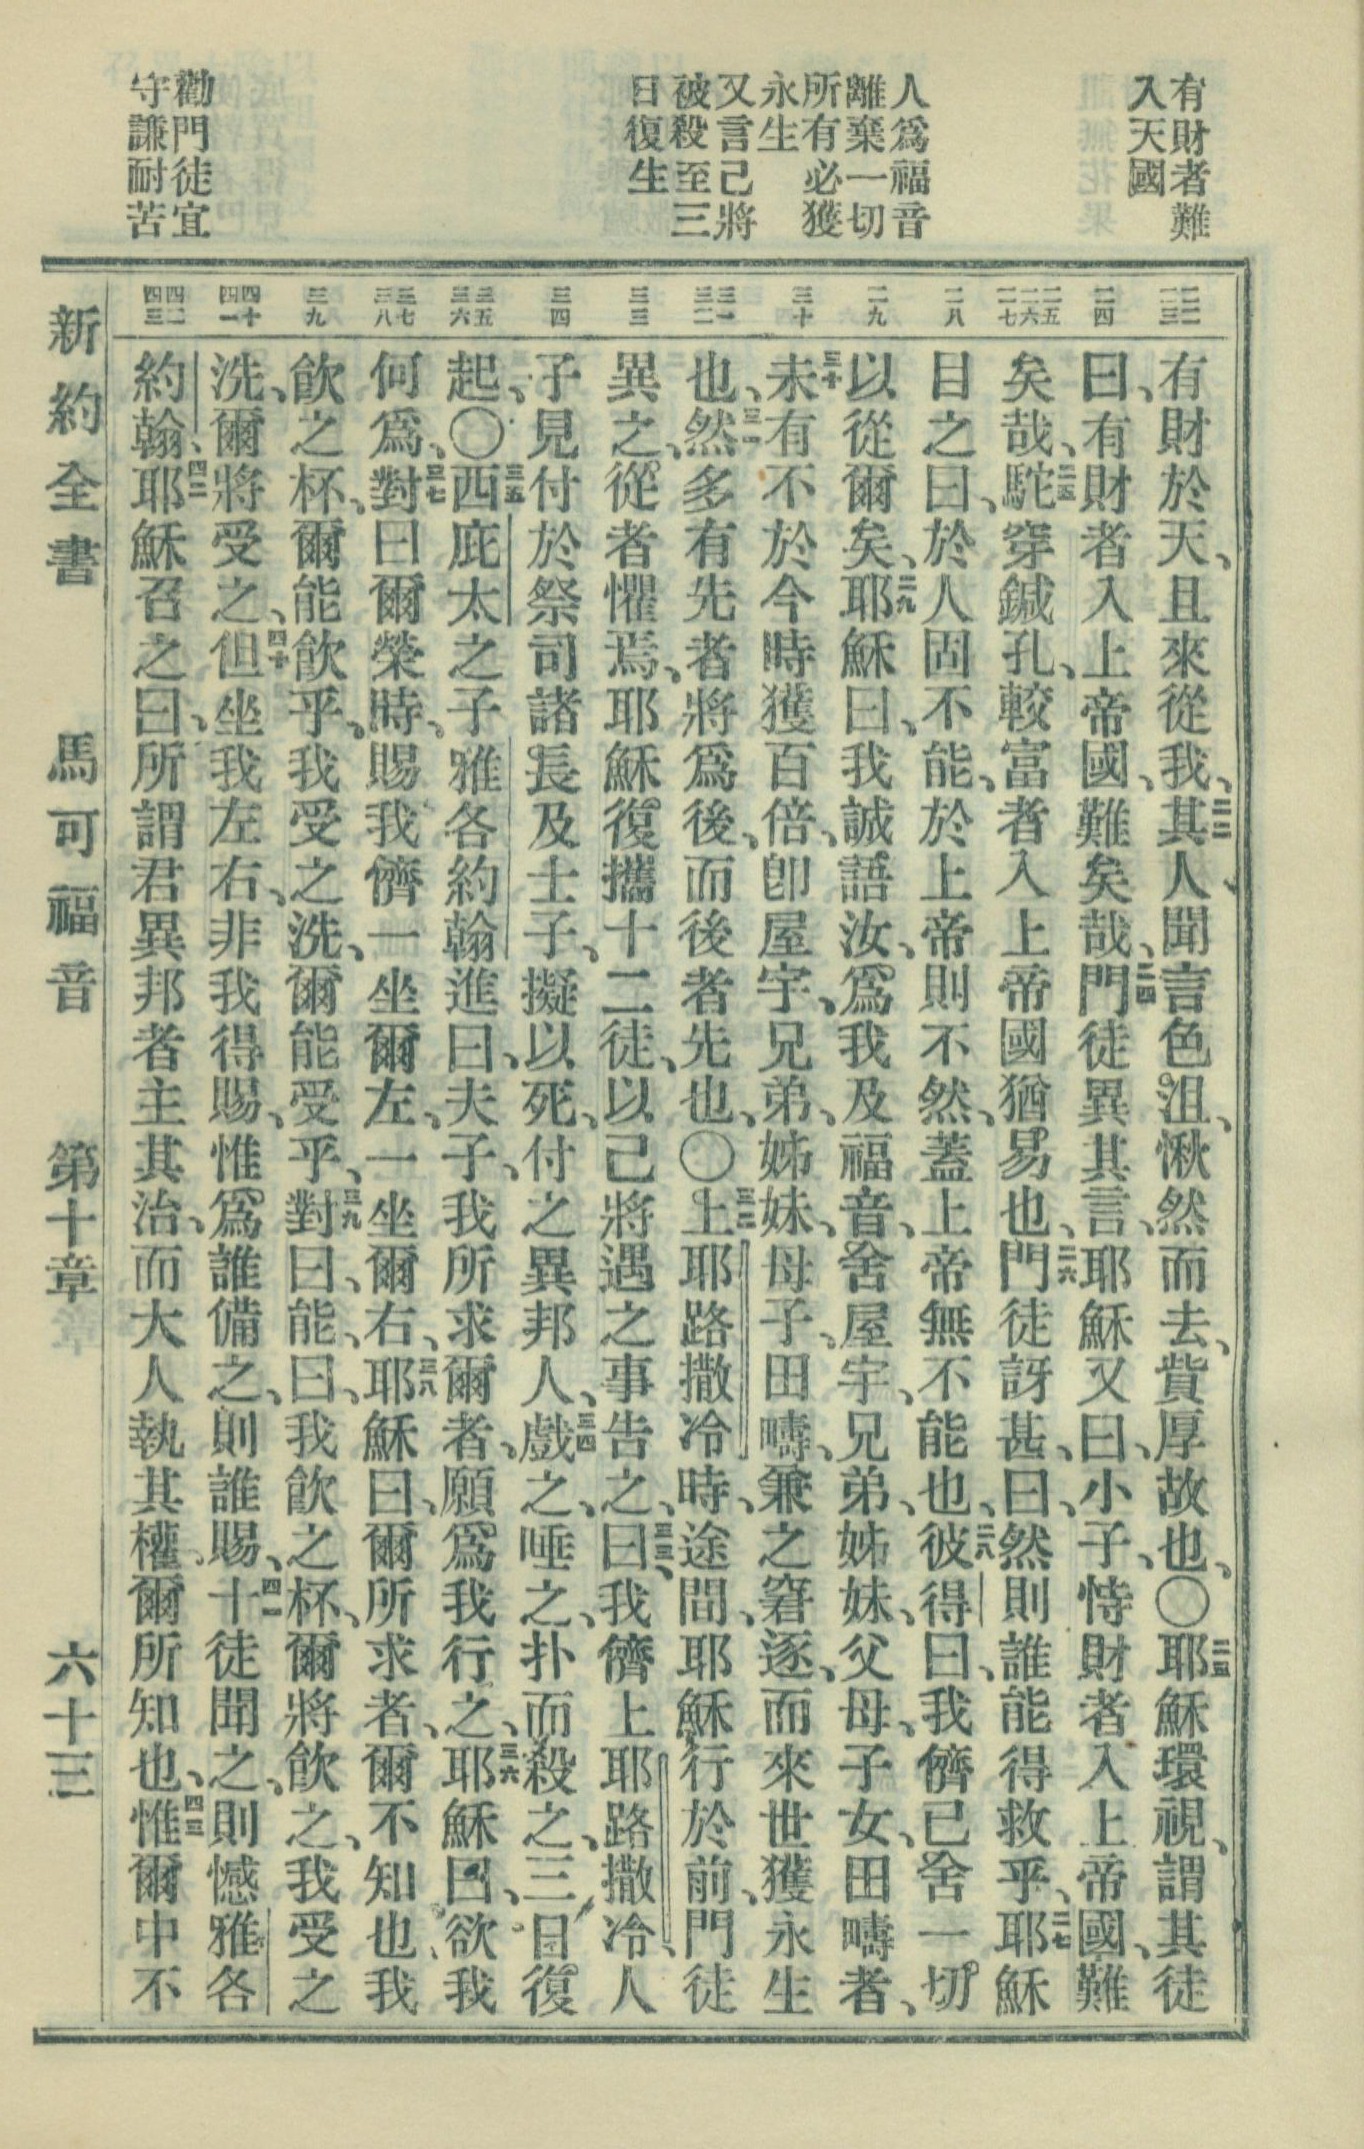 有財者難
入天國
人爲福音
離棄一切
所有必獲
永生
又言己將
被殺至三
日復生
勸門徒宜
守謙耐苦
二二 二三
二四
二五 二六 二七
二八
二九
三十
三一 三二
三三
三四
三五 三六
三七 三八
三九
四十 四一
四二 四三
有財於天、且來從我、二二其人聞言色沮、愀然而去、貲厚故也、〇二三耶穌環視、謂其徒
曰、有財者入上帝國、難矣哉、二四門徒異其言、耶穌又曰、小子、恃財者入上帝國、難
矣哉、二五駝穿鍼孔、較富者入上帝國猶易也、二六門徒訝甚、曰、然則誰能得救乎、二七耶穌
目之曰、於人固不能、於上帝則不然、蓋上帝無不能也、二八彼得曰、我儕已舍一切
以從爾矣、二九耶穌曰、我誠語汝、爲我及福音、舍屋宇、兄弟、姊妹、父母、子女、田疇者、
三十未有不於今時獲百倍、卽屋宇、兄弟、姊妹、母子、田疇、兼之窘逐、而來世獲永生
也、三一然多有先者將爲後、而後者先也、〇三二上耶路撒冷時、途間、耶穌行於前、門徒
異之、從者懼焉、耶穌復攜十二徒、以己將遇之事告之、三三曰、我儕上耶路撒冷、人
子見付於祭司諸長及士子、擬以死、付之異邦人、三四戲之、唾之、扑而殺之、三日復
起、〇三五西庇太之子雅各約翰進曰、夫子、我所求爾者、願爲我行之、三六耶穌曰、欲我
何爲、三七對曰、爾榮時、賜我儕一坐爾左、一坐爾右、三八耶穌曰、爾所求者、爾不知也、我
飮之杯、爾能飮乎、我受之洗、爾能受乎、三九對曰、能、曰、我飮之杯、爾將飮之、我受之
洗、爾將受之、四十但坐我左右、非我得賜、惟爲誰備之、則誰賜、四一十徒聞之、則憾雅各
約翰、四二耶穌召之曰、所謂君異邦者主其治、而大人執其權、爾所知也、四三惟爾中不
新約全書 馬可福音 第十章 六十三